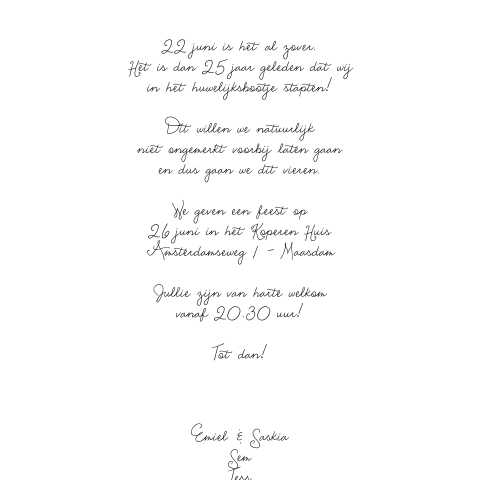 22 juni is het al zover.
Het is dan 25 jaar geleden dat wij
in het huwelijksbootje stapten!
Dit willen we natuurlijk
niet ongemerkt voorbij laten gaan
en dus gaan we dit vieren.
We geven een feest op
26 juni in het Koperen Huis
Amsterdamseweg 1 - Maasdam
Jullie zijn van harte welkom
vanaf 20.30 uur!
Tot dan!
Emiel & Saskia
Sem
Tess